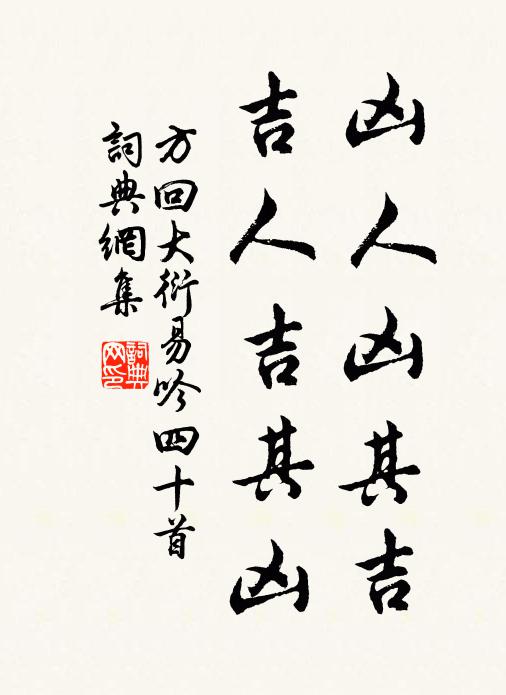 凶人凶其吉
吉人吉其凶
方回大衍易吟四十首
詞典網集
詞典
网印